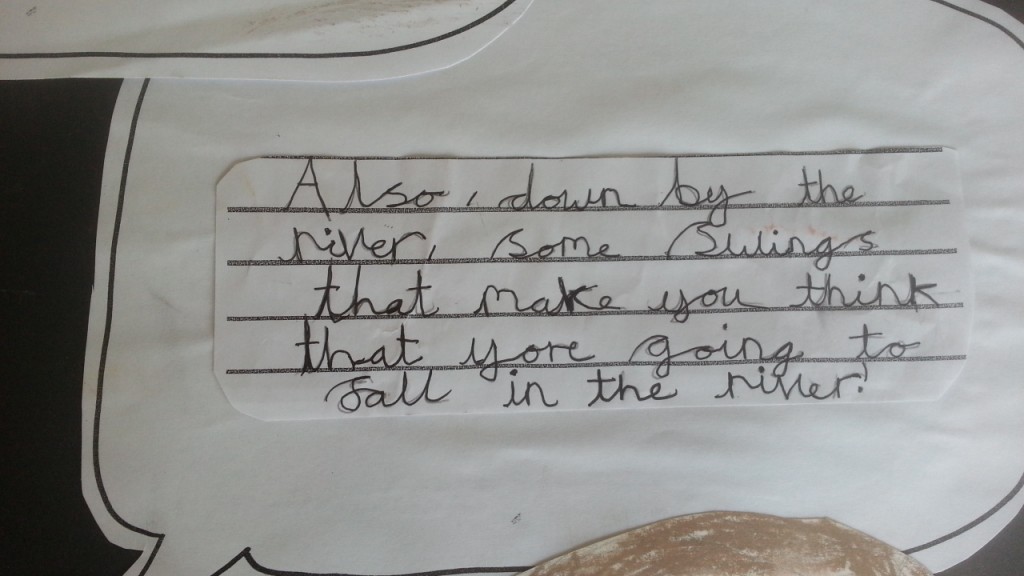 Also, down by the
river, some swings
that make you think
that yore going to
fall in the river!